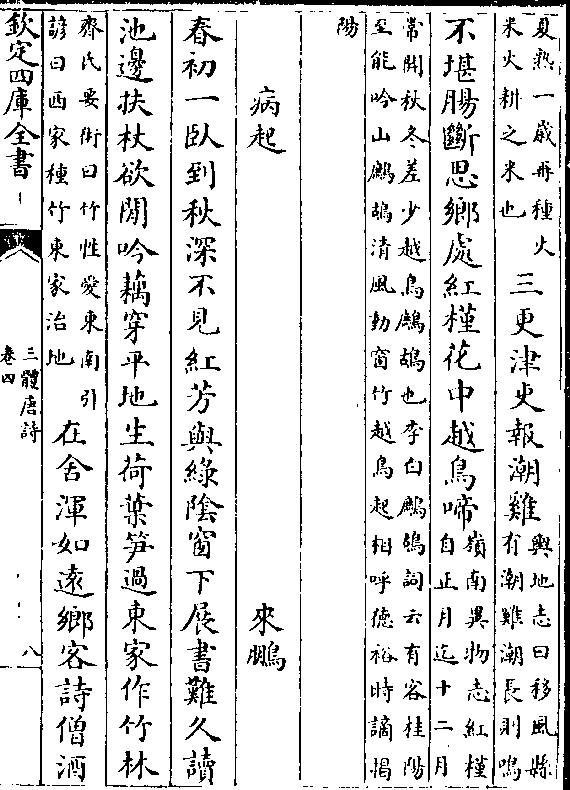 夏熟一歲再種火
米火耕之米也
三更津吏報潮雞
輿地志曰移風縣
有潮雞潮長則鳴
不堪腸斷思鄉處紅槿花中越鳥啼
嶺南異物志紅槿
自正月迄十二月
常開秋冬差少越鳥鷓鴣也李白鷓鴣詞云有客桂陽
至能吟山鷓鴣清風動窗竹越鳥起相呼德裕時謫揭
陽
病起 來鵬
春初一臥到秋深不見紅芳與綠陰窗下展書難久讀
池邊扶杖欲閒吟藕穿平地生荷葉笋過東家作竹林
齊氏要術曰竹性愛東南引
諺曰西家種竹東家治地
在舍渾如遠鄉客詩僧酒
欽定四庫全書
三體唐詩
卷四
八